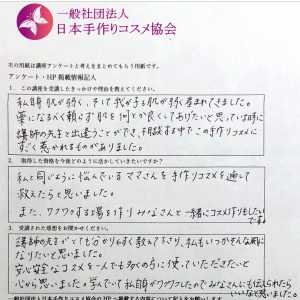 一般社団法人
日本手作りコスメ協会
次の用紙は講座アンケートと考えをまとめてもらう用紙です。
アンケート・HP 掲載情報記入
1. この講座を受講したきっかけや理由を教えてください。
私自身肌が弱く、そして我が子も肌が弱く産まれてきました。
薬になるべく頼らず肌を何とか良くしてあげたいと思っている時に
講師の先生と出逢うことができ、相談する中でこの手作りコスメに
すごく惹かれるものがありました。
2. 取得した資格を今後どのように活かしていきたいですか？
私と同じように悩んでいるママさんを手作りコスメを通して
救えたらと思いました。
また、ワクワクする場を作りみなさんと一緒にコスメ作りもしたい
です。
3. 受講された感想をお聞かせください。
講師の先生がとても分かりやすく教えて下さり、私もいつかそんな風に
なりたいと思いました。
安心安全なコスメを一人でも多くの方に使っていただきたいと
心から思いました。学んでいて私自身がワクワクしたのでみなさんにも伝えられたら
いいなと思いました。